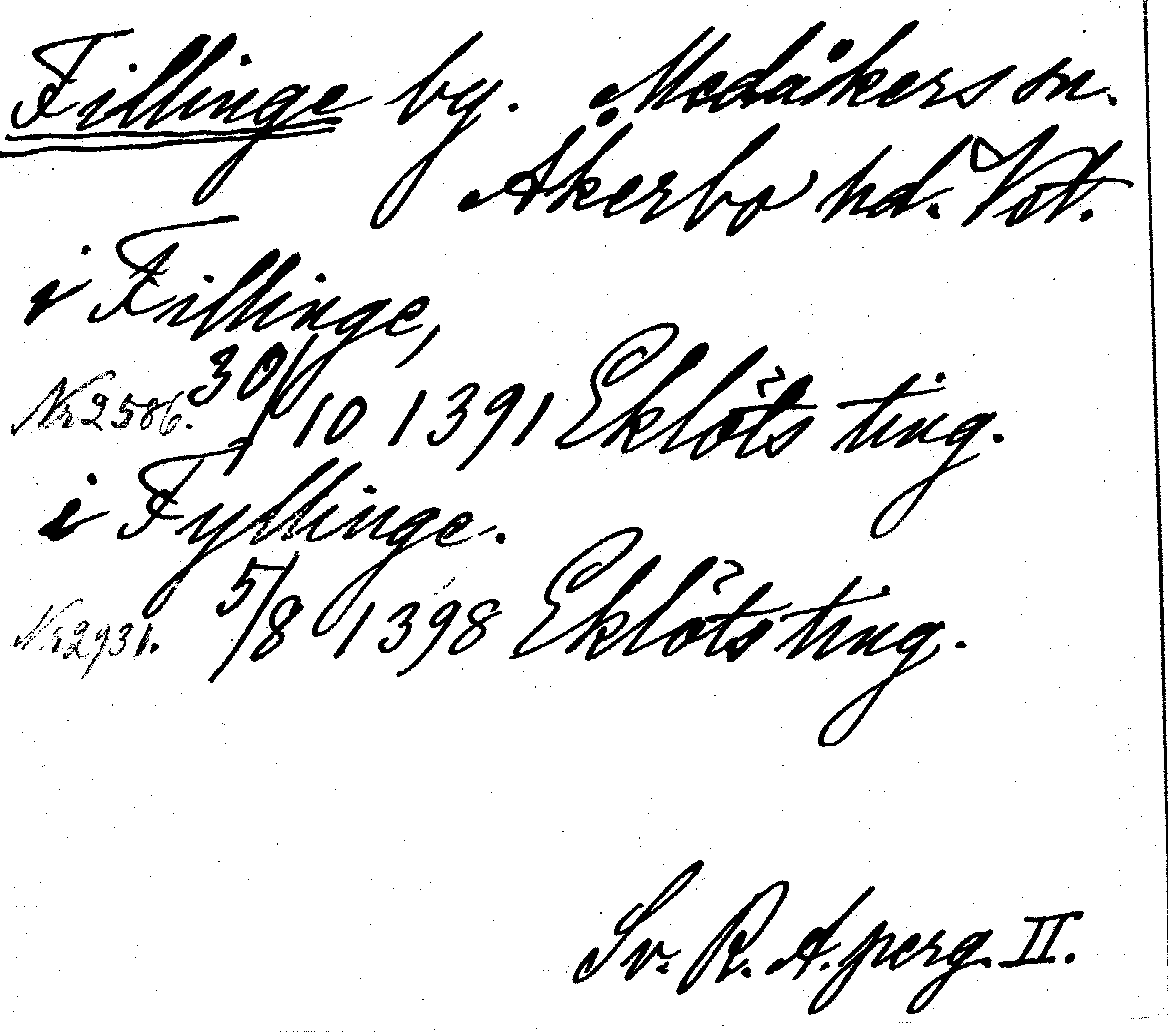 Fillinge by. Medåkers sn.
Åkerbo hd. Vstl.
i Fillinge,
Nr 2586. 30/10 1391 Eklöts ting.
i Fyllinge.
Nr 2931. 5/8 1398 Eklöts ting.
Sv. R. A. perg. II.